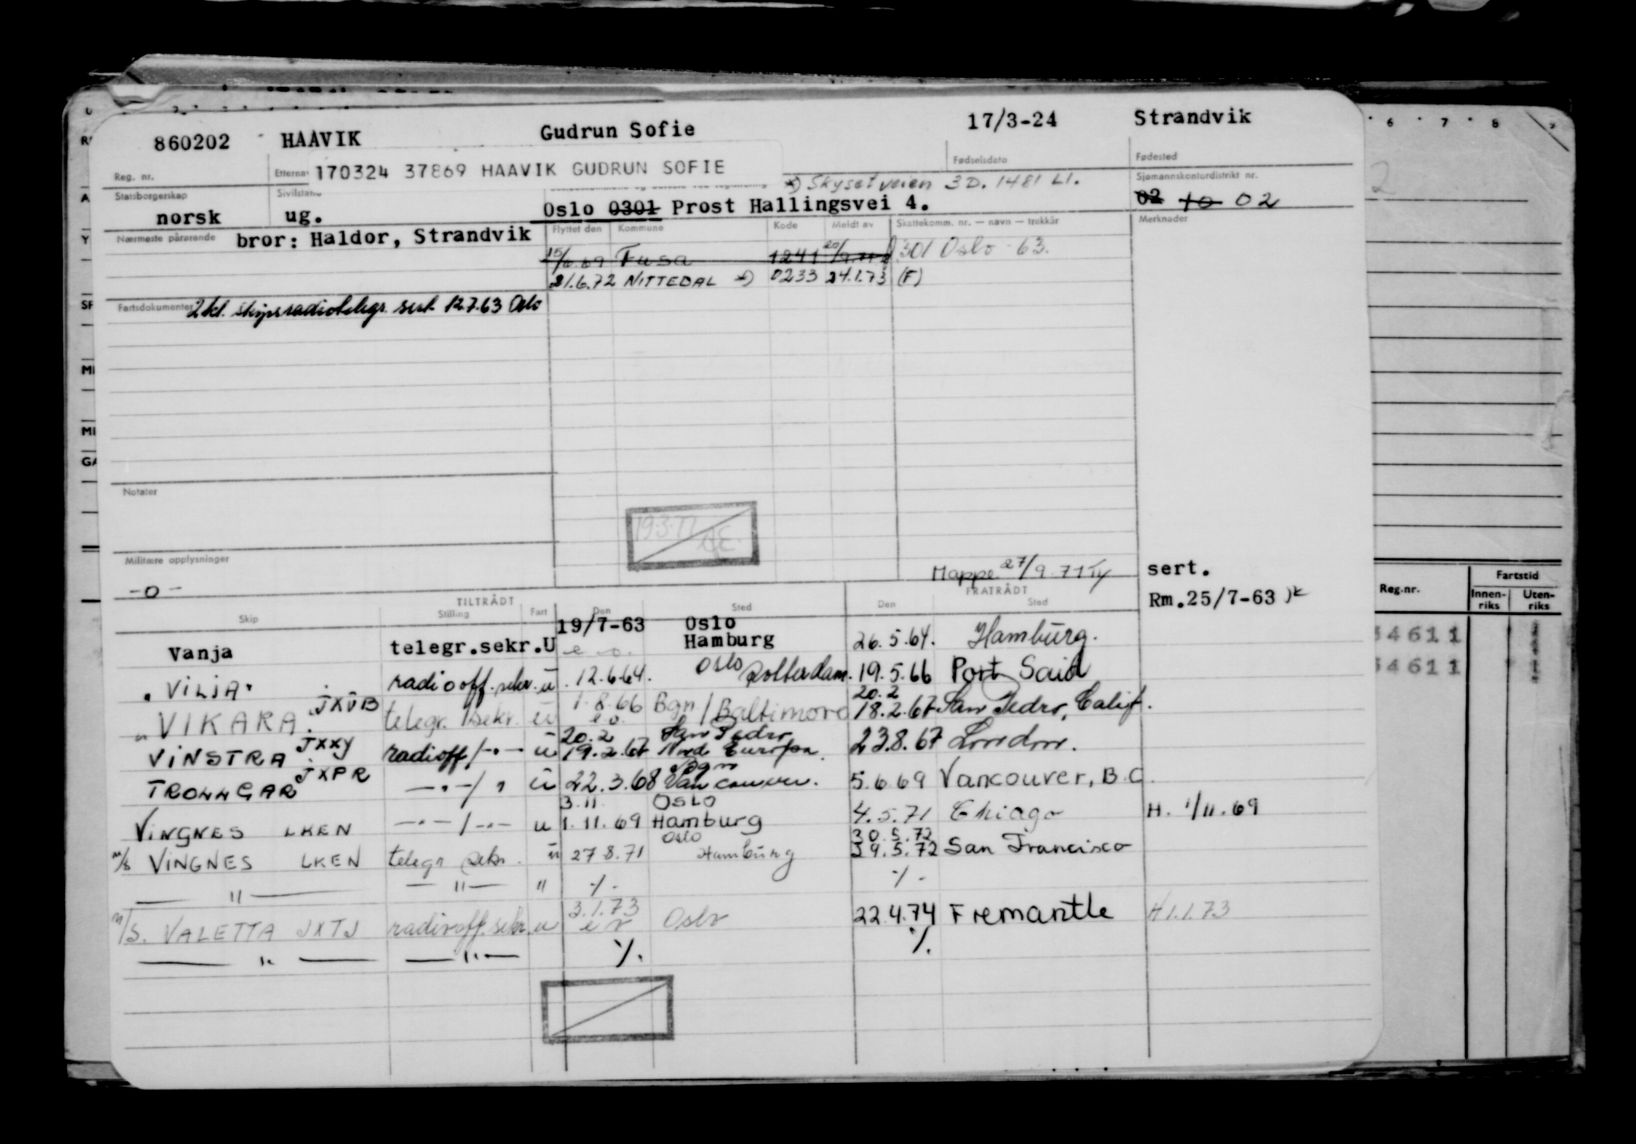 860202 HAAVIK Gudrun Sofie 17/3-24 Strandvik
Reg. nr. Etterna 170324 37869 HAAVIK GUDRUN SOFIE Fødselsdato Fødested
Statsborgerskap Sivilstan *) Skysetveien 3D. 1481 LI. Sjømannskontordistrikt nr.
norsk ug. Oslo 0301 Prost Hallingsvei 4. 02 10 02
Nærmeste pårørende bror: Haldor, Strandvik Flyttet den Kommune Kode Meldt av Skattekomm. nr. — navn — trekkår Merknader
15/6.69 Fusa 1241 301 Oslo 63.
21.6.72 NITTEDAL *) 0233 24.1.73 (F)
Fartsdokumenter 2 kl. skipsradiotelegr. sert. 12.7.63 Oslo
Notater
19.3.77
Militære opplysninger
-0- Mappe 27/9.71 sert.
TILTRÅDT FRATRÅDT Rm.25/7-63
Skip Stilling Fart Den Sted Den Sted
Vanja telegr.sekr. U 19/7-63 Oslo Hamburg 26.5.64. Hamburg.
e.o.
"VILJA" radiooff. sekr. u 12.6.64. Oslo Rotterdam. 19.5.66 Port Said
"VIKARA. JXÜB telegr. /sekr. u 1.8.66 e.o. Bgn / Baltimore 20.2 18.2.67 San Pedro, Calif.
VINSTRA JXXY radioff /-"- u 20.2 19.2.67 San Pedro Nord Europa. 23.8.67 London.
TROLLGAR JXPR -"-/ " u 22.3.68 Bgn Vancouver. 5.6.69 Vancouver, B.C.
VINGNES LKEN -"-/-"- u 3.11. 1.11.69 OSLO Hamburg 4.5.71 Chiago H. 1/11.69
m/s VINGNES LKEN telegr. sekr. u 27.8.71 Oslo Hamburg 30.5.72 29.5.72 San Francisco
— " — — " — " ./. ./.
m/s. VALETTA JXTJ radiooff. sekr. u 3.1.73 e.o. Oslo 22.4.74 Fremantle H 1.1.73
— " — — " — ./. ./.
6 7 8
Reg.nr. Fartstid
Innen-riks Uten-riks
54611
54611